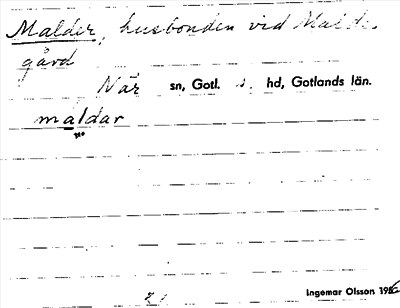 Malder, husbonden vid
gård
När sn, Gotl. s. hd, Gotlands län.
maldar
Ingemar Olsson